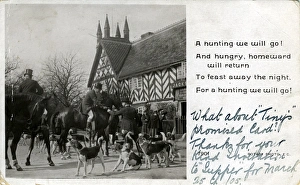 A hunting we will go!
And hungry, homeward
will return
To feast away the night.
For a hunting we will go!
What about Tiny's
promised Card!!
Thanks for your
kind invitation
to Supper for March
25